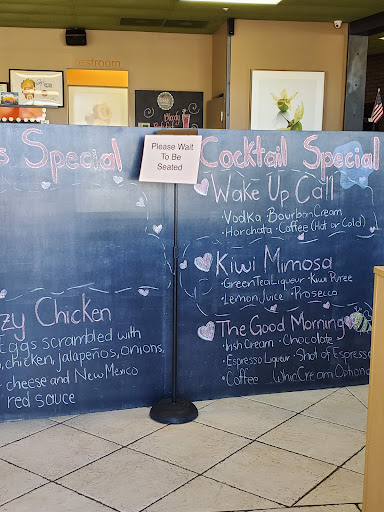 restroom
Bloody
Please Wait
To Be
Seated
s Special
zy Chicken
Eggs scrambled with
chicken, jalapeños, onions,
cheese and New Mexico
red sauce
Cocktail Special
Wake Up Call
Vodka · Bourbon Cream
· Horchata · Coffee (Hot or Cold)
Kiwi Mimosa
· Green Tea Liqueur · Kiwi Puree
· Lemon Juice · Prosecco
The Good Morning
Irish Cream · Chocolate
Espresso Liqueur · Shot of Espresso
Coffee · Whip Cream Optional